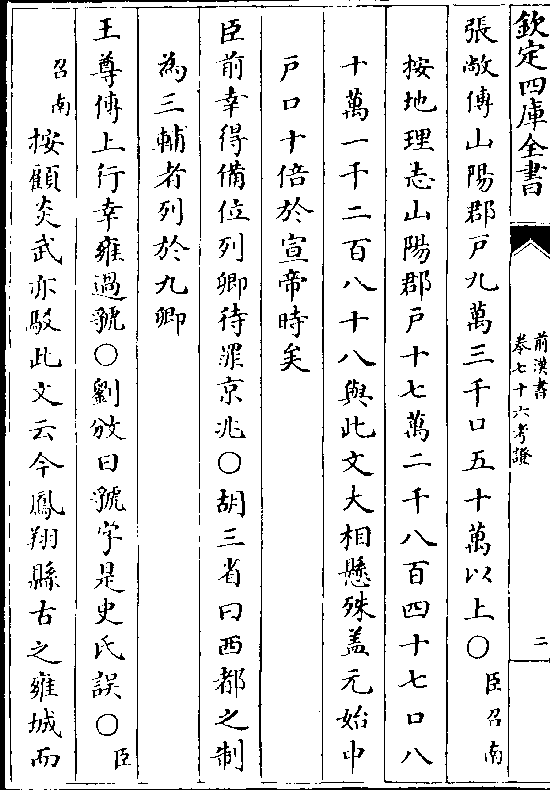 欽定四庫全書
前漢書
卷七十六考證
二
張敞傳山陽郡戶九萬三千口五十萬以上○臣召南
按地理志山陽郡戶十七萬二千八百四十七口八
十萬一千二百八十八與此文大相懸殊盖元始中
戶口十倍於宣帝時矣
臣前幸得備位列卿待罪京兆○胡三省曰西都之制
為三輔者列於九卿
王尊傳上行幸雍過虢○劉攽曰虢字是史氏誤○臣
召南按顧炎武亦駁此文云今鳳翔縣古之雍城而